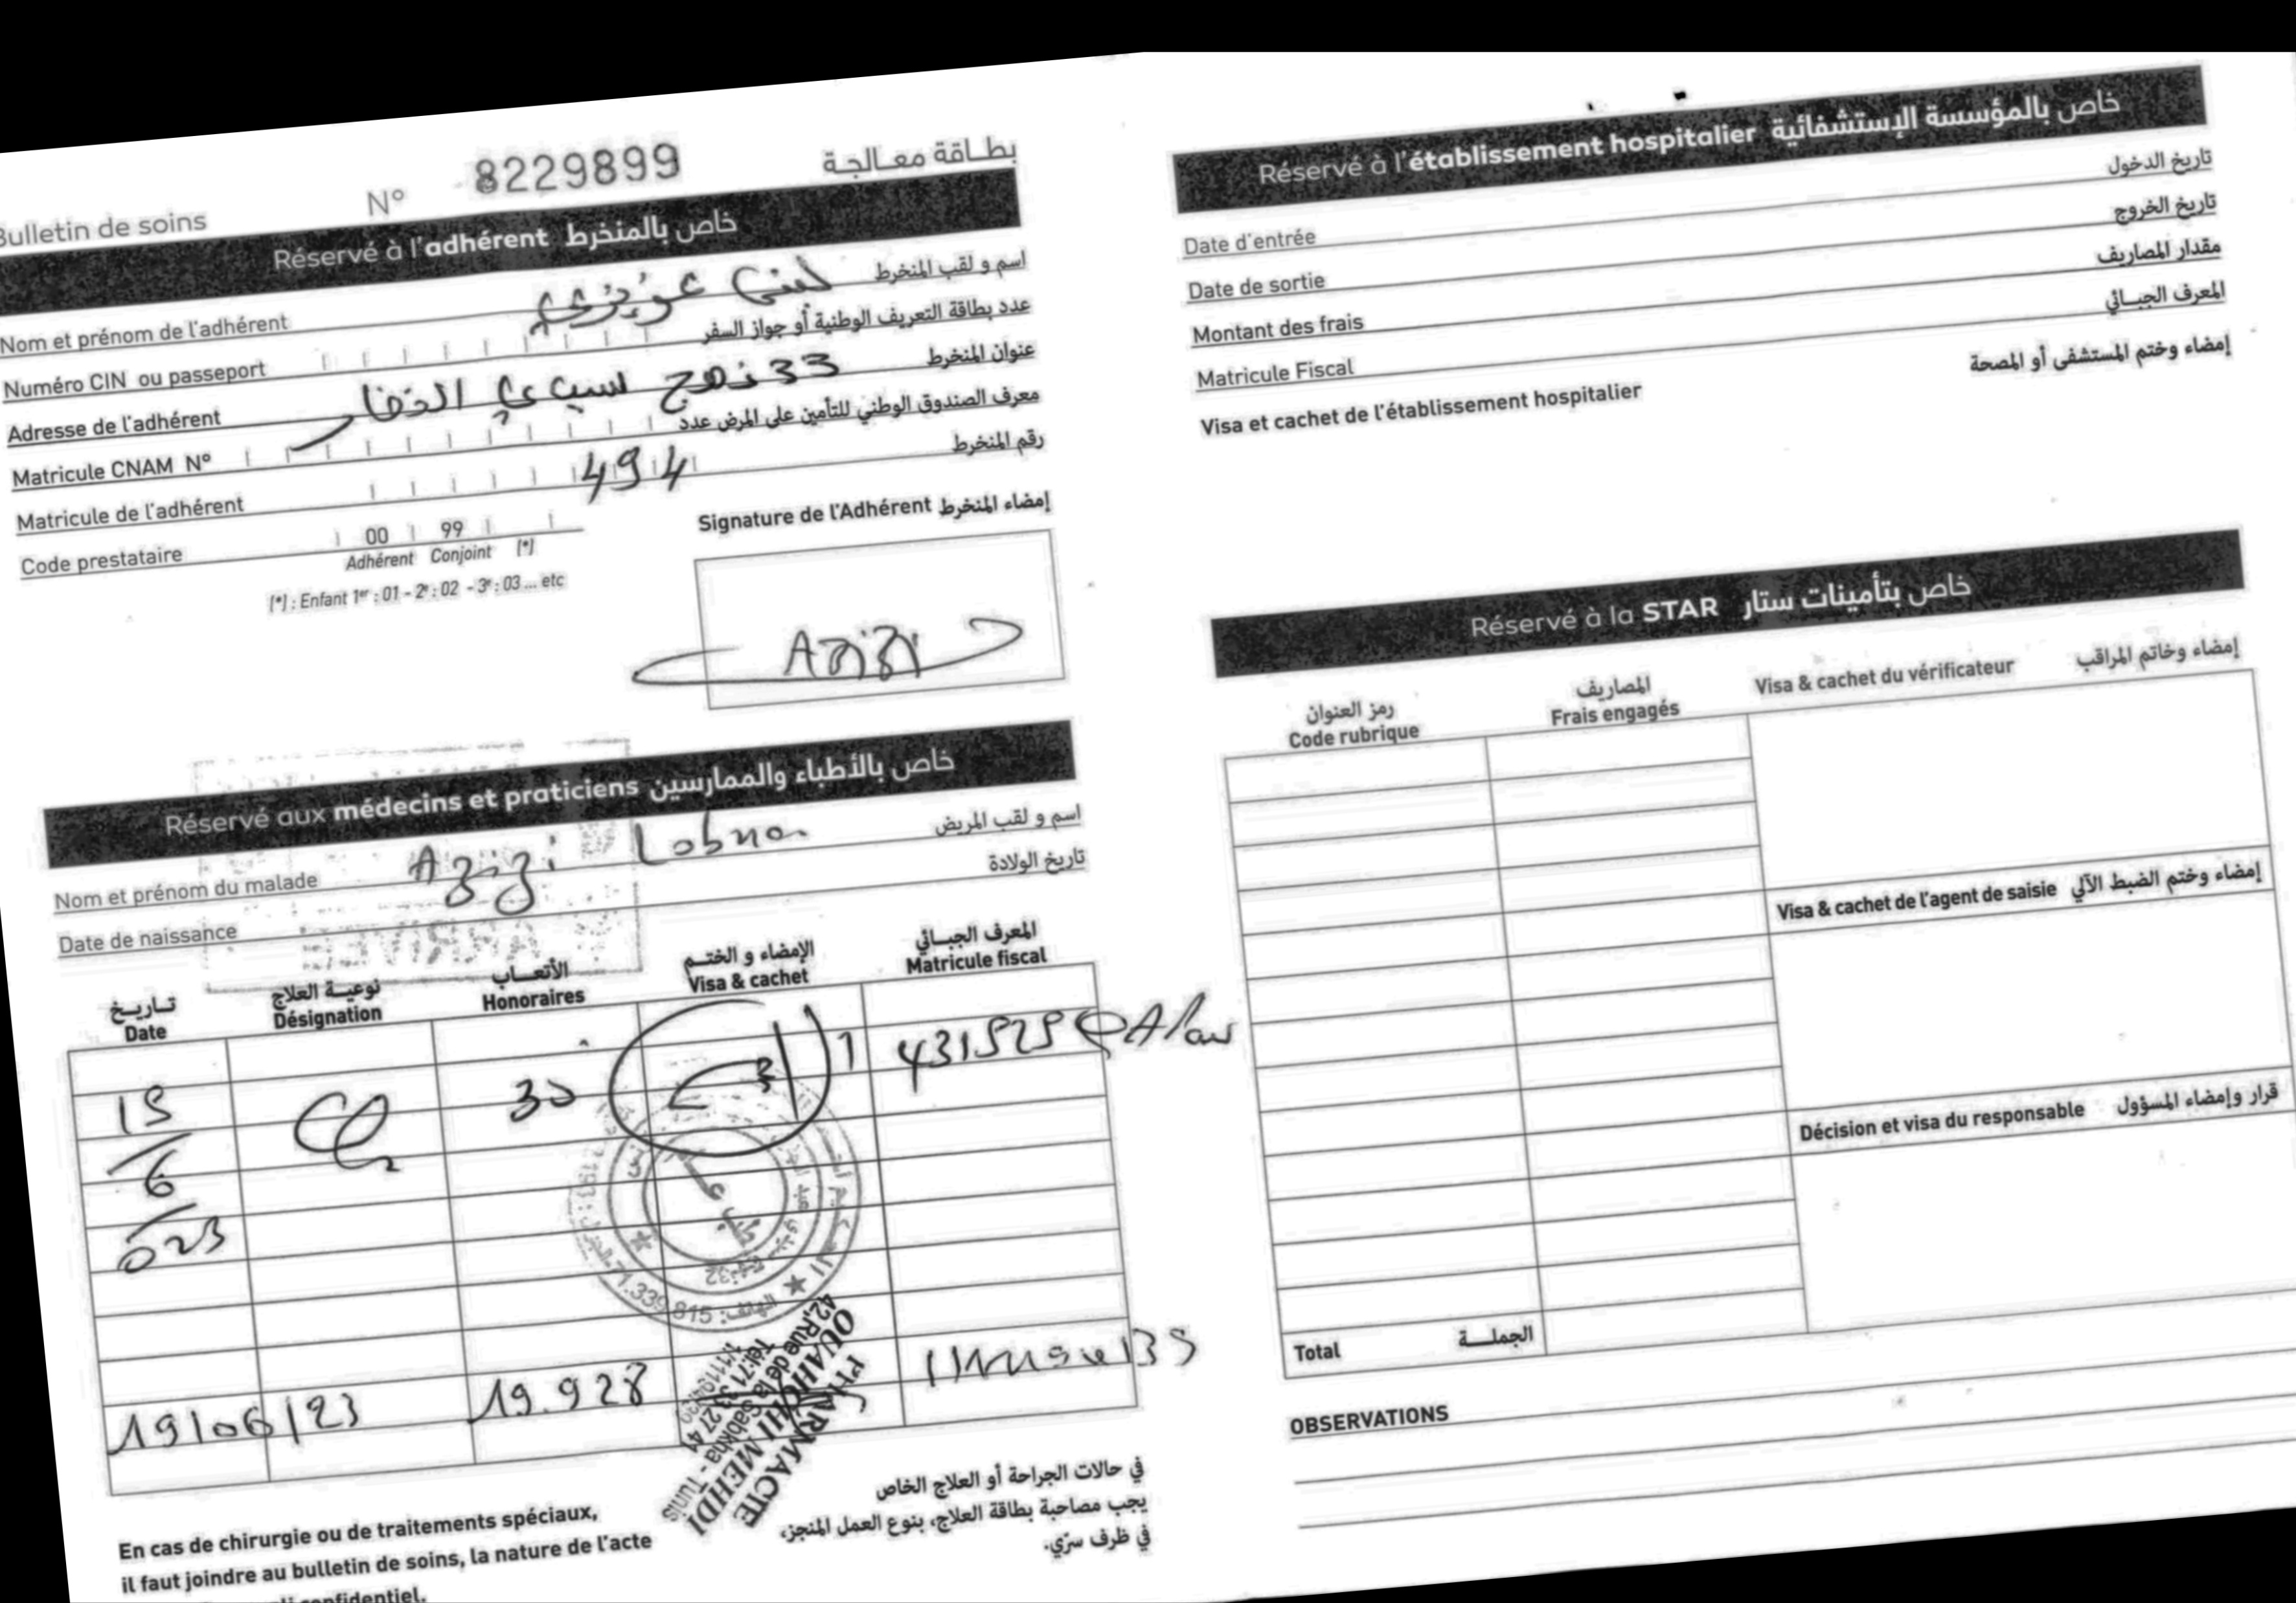 Bulletin de soins N° 8229899 بطاقة معالجة
Réservé à l'adhérent خاص بالمنخرط
Nom et prénom de l'adhérent لبنى عزيزي اسم و لقب المنخرط
Numéro CIN ou passeport عدد بطاقة التعريف الوطنية أو جواز السفر
Adresse de l'adhérent 33 نهج سيدي عنوان المنخرط
Matricule CNAM N° معرف الصندوق الوطني للتأمين على المرض عدد
Matricule de l'adhérent 494 رقم المنخرط
Code prestataire 00 99
Adhérent Conjoint (*)
(*) : Enfant 1er : 01 - 2e : 02 - 3e : 03 ... etc
Signature de l'Adhérent إمضاء المنخرط
Azizi
Réservé aux médecins et praticiens خاص بالأطباء والممارسين
Nom et prénom du malade Azizi Lobna اسم و لقب المريض
Date de naissance تاريخ الولادة
تاريخ نوعية العلاج الأتعاب الإمضاء و الختم المعرف الجبائي
Date Désignation Honoraires Visa & cachet Matricule fiscal
15 30 431525
6
023
الهاتف: 71.339.815
19/06/23 19.928
PHARMACIE
OUAHCHI MEHDI
42, Rue de la Sabkha - Tunis
En cas de chirurgie ou de traitements spéciaux,
il faut joindre au bulletin de soins, la nature de l'acte
confidentiel.
في حالات الجراحة أو العلاج الخاص
يجب مصاحبة بطاقة العلاج، بنوع العمل المنجز،
في ظرف سرّي.
Réservé à l'établissement hospitalier خاص بالمؤسسة الإستشفائية
Date d'entrée تاريخ الدخول
Date de sortie تاريخ الخروج
Montant des frais مقدار المصاريف
Matricule Fiscal المعرف الجبائي
Visa et cachet de l'établissement hospitalier إمضاء وختم المستشفى أو المصحة
Réservé à la STAR خاص بتأمينات ستار
رمز العنوان المصاريف
Code rubrique Frais engagés Visa & cachet du vérificateur إمضاء وخاتم المراقب
Visa & cachet de l'agent de saisie إمضاء وختم الضبط الآلي
Décision et visa du responsable قرار وإمضاء المسؤول
Total الجملة
OBSERVATIONS